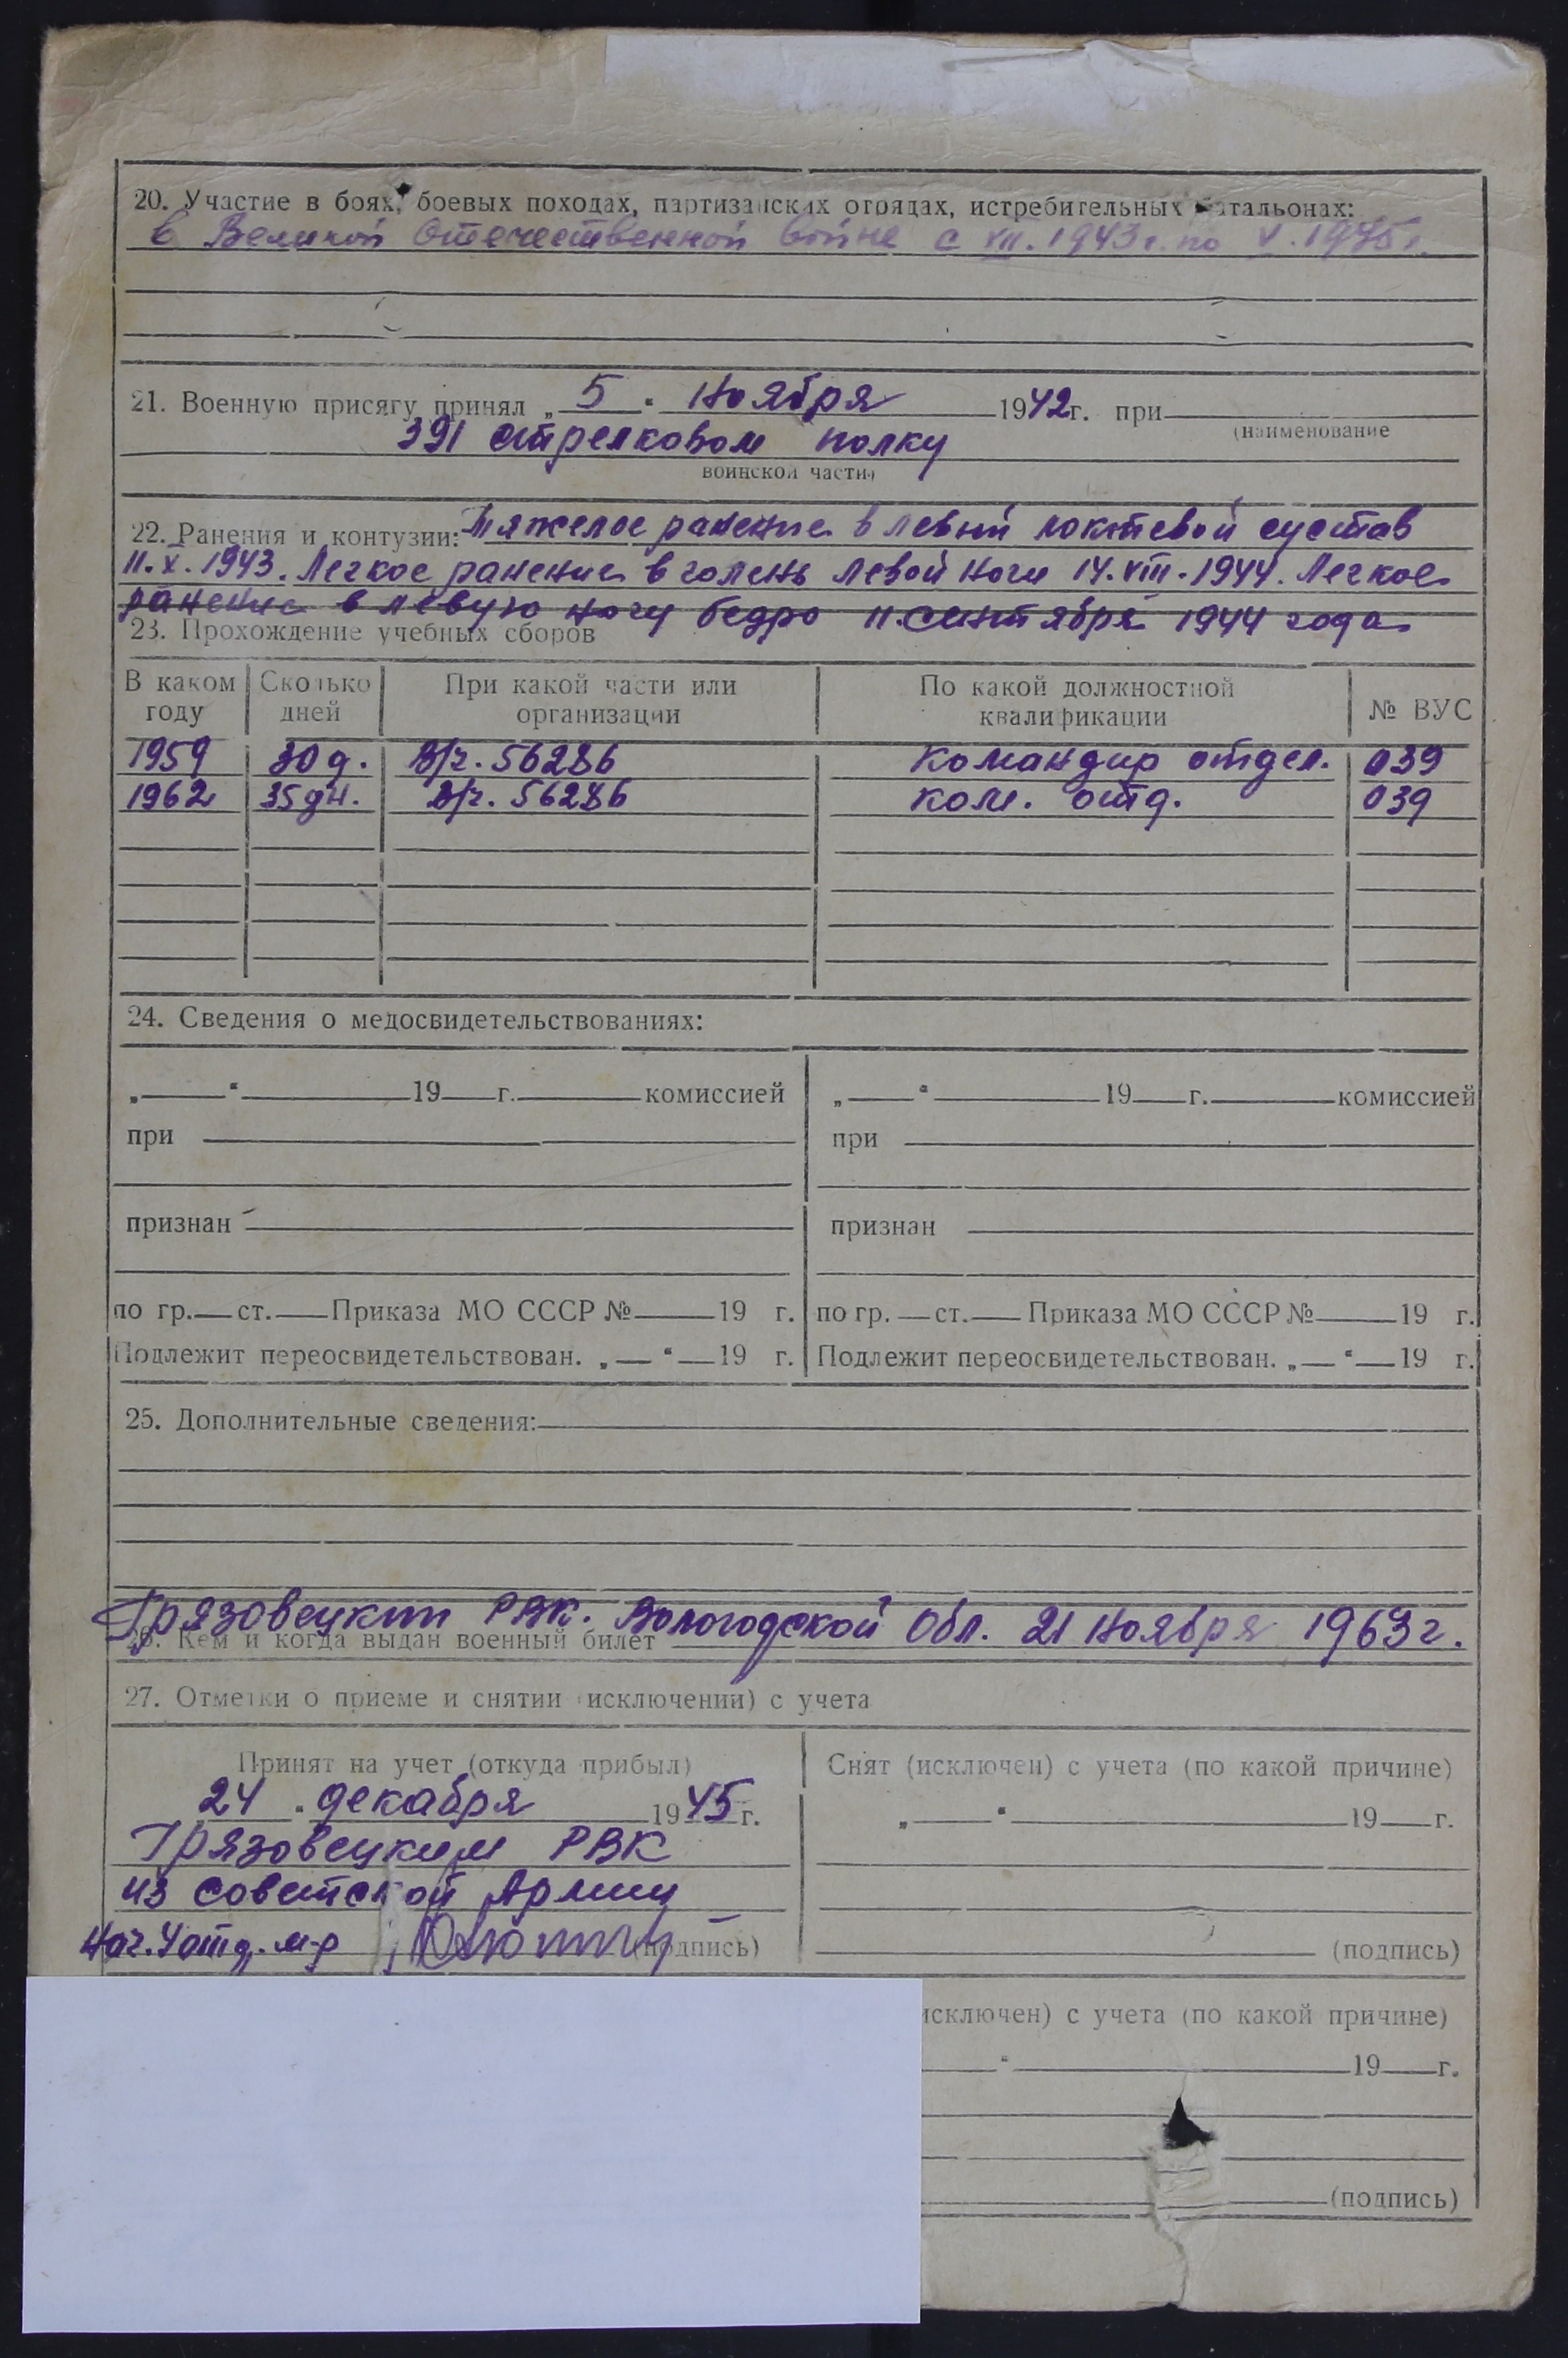 20. Участие в боях, боевых походах, партизанских отрядах, истребительных батальонах:
в Великой Отечественной войне с VII. 1943 г. по V. 1945 г.
21. Военную присягу принял „5“ ноября 1942 г. при
(наименование
391 стрелковом полку
воинской части)
22. Ранения и контузии: Тяжелое ранение в левый локтевой сустав
11.X.1943. Легкое ранение в голень левой ноги 14.VIII.1944. Легкое
ранение в левую ногу бедро 11 сентября 1944 года
23. Прохождение учебных сборов
В каком году Сколько дней При какой части или организации По какой должностной квалификации № ВУС
1959 30 д. В/ч. 56286 Командир отдел. 039
1962 35 дн. В/ч. 56286 ком. отд. 039
24. Сведения о медосвидетельствованиях:
„ “ 19 г. комиссией „ “ 19 г. комиссией
при при
признан признан
по гр. ст. Приказа МО СССР № 19 г. по гр. ст. Приказа МО СССР № 19 г.
Подлежит переосвидетельствован. „ “ 19 г. Подлежит переосвидетельствован. „ “ 19 г.
25. Дополнительные сведения:
Грязовецким РВК. Вологодской Обл. 21 ноября 1963 г.
26. Кем и когда выдан военный билет
27. Отметки о приеме и снятии (исключении) с учета
Принят на учет (откуда прибыл) Снят (исключен) с учета (по какой причине)
24 “ декабря 1945 г. „ “ 19 г.
Грязовецким РВК
из Советской Армии
Нач. 4 отд. м-р (подпись) (подпись)
исключен) с учета (по какой причине)
“ 19 г.
(подпись)